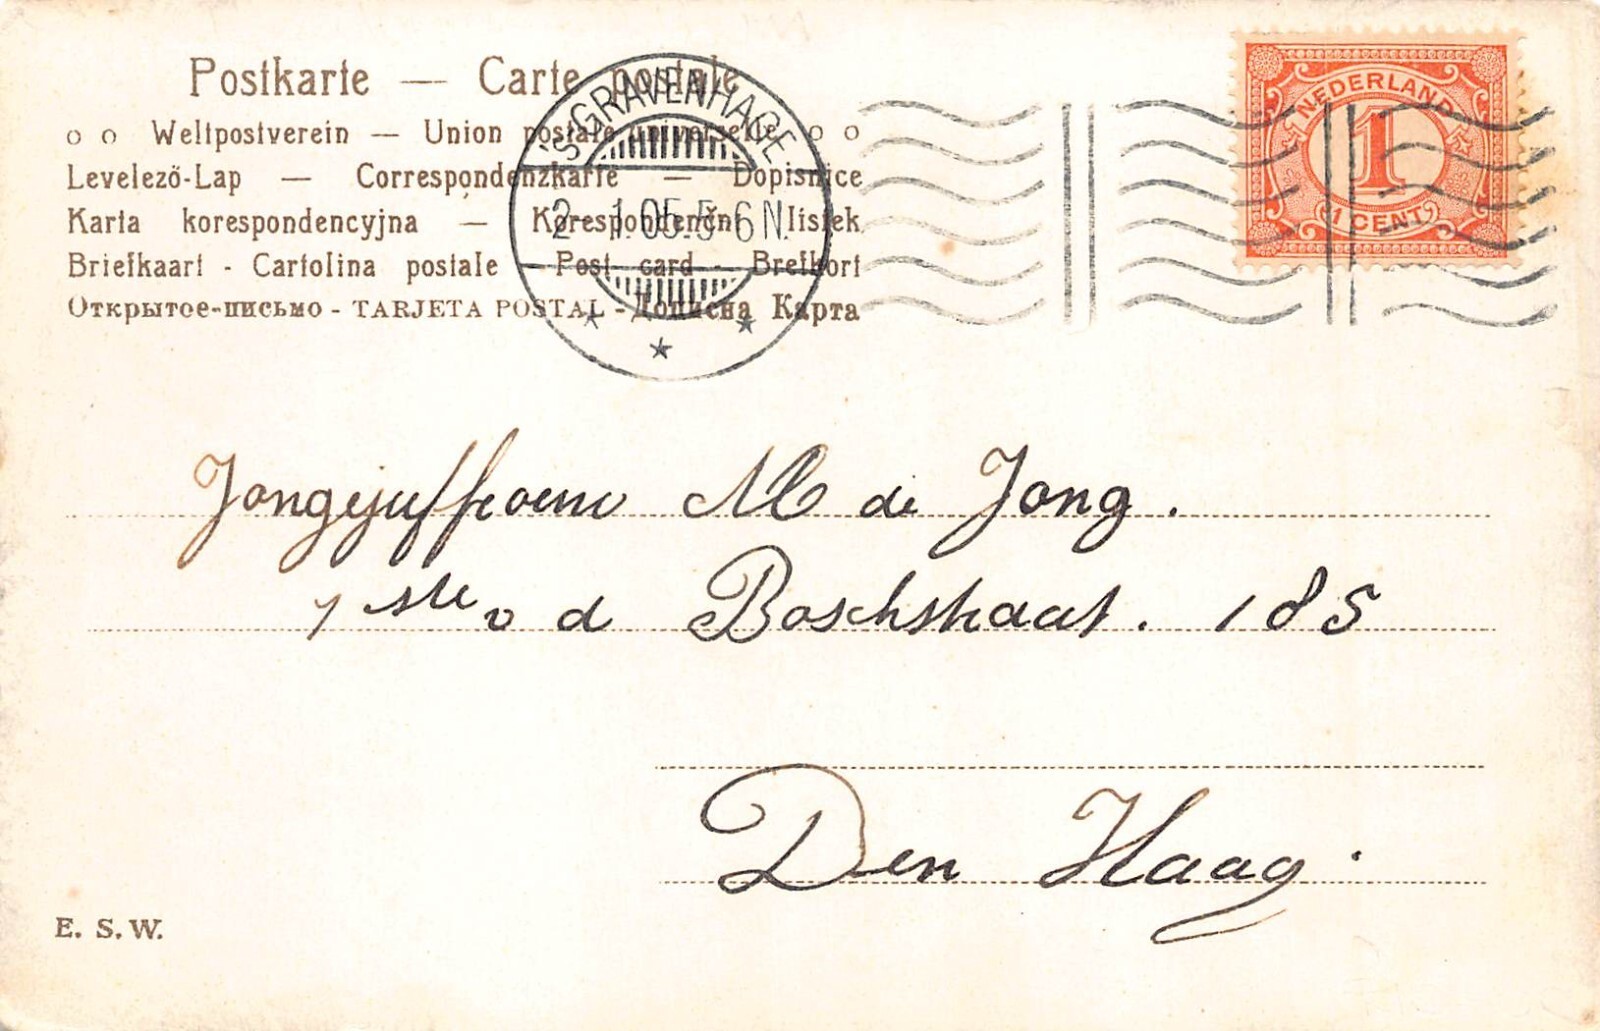 Postkarte — Carte postale
o o Weltpostverein — Union postale universelle o o
Levelező-Lap — Correspondenzkarte — Dopisnice
Karta korespondencyjna — Korespondenční lístek
Briefkaart - Cartolina postale - Post card - Brefkort
Открытое-письмо - TARJETA POSTAL - Дописна Карта
'S-GRAVENHAGE
2 - 1.05.5-6N.
NEDERLAND
1
1 CENT
Jongejuffrouw M de Jong.
1ste v d Boschstraat. 185
Den Haag.
E. S. W.